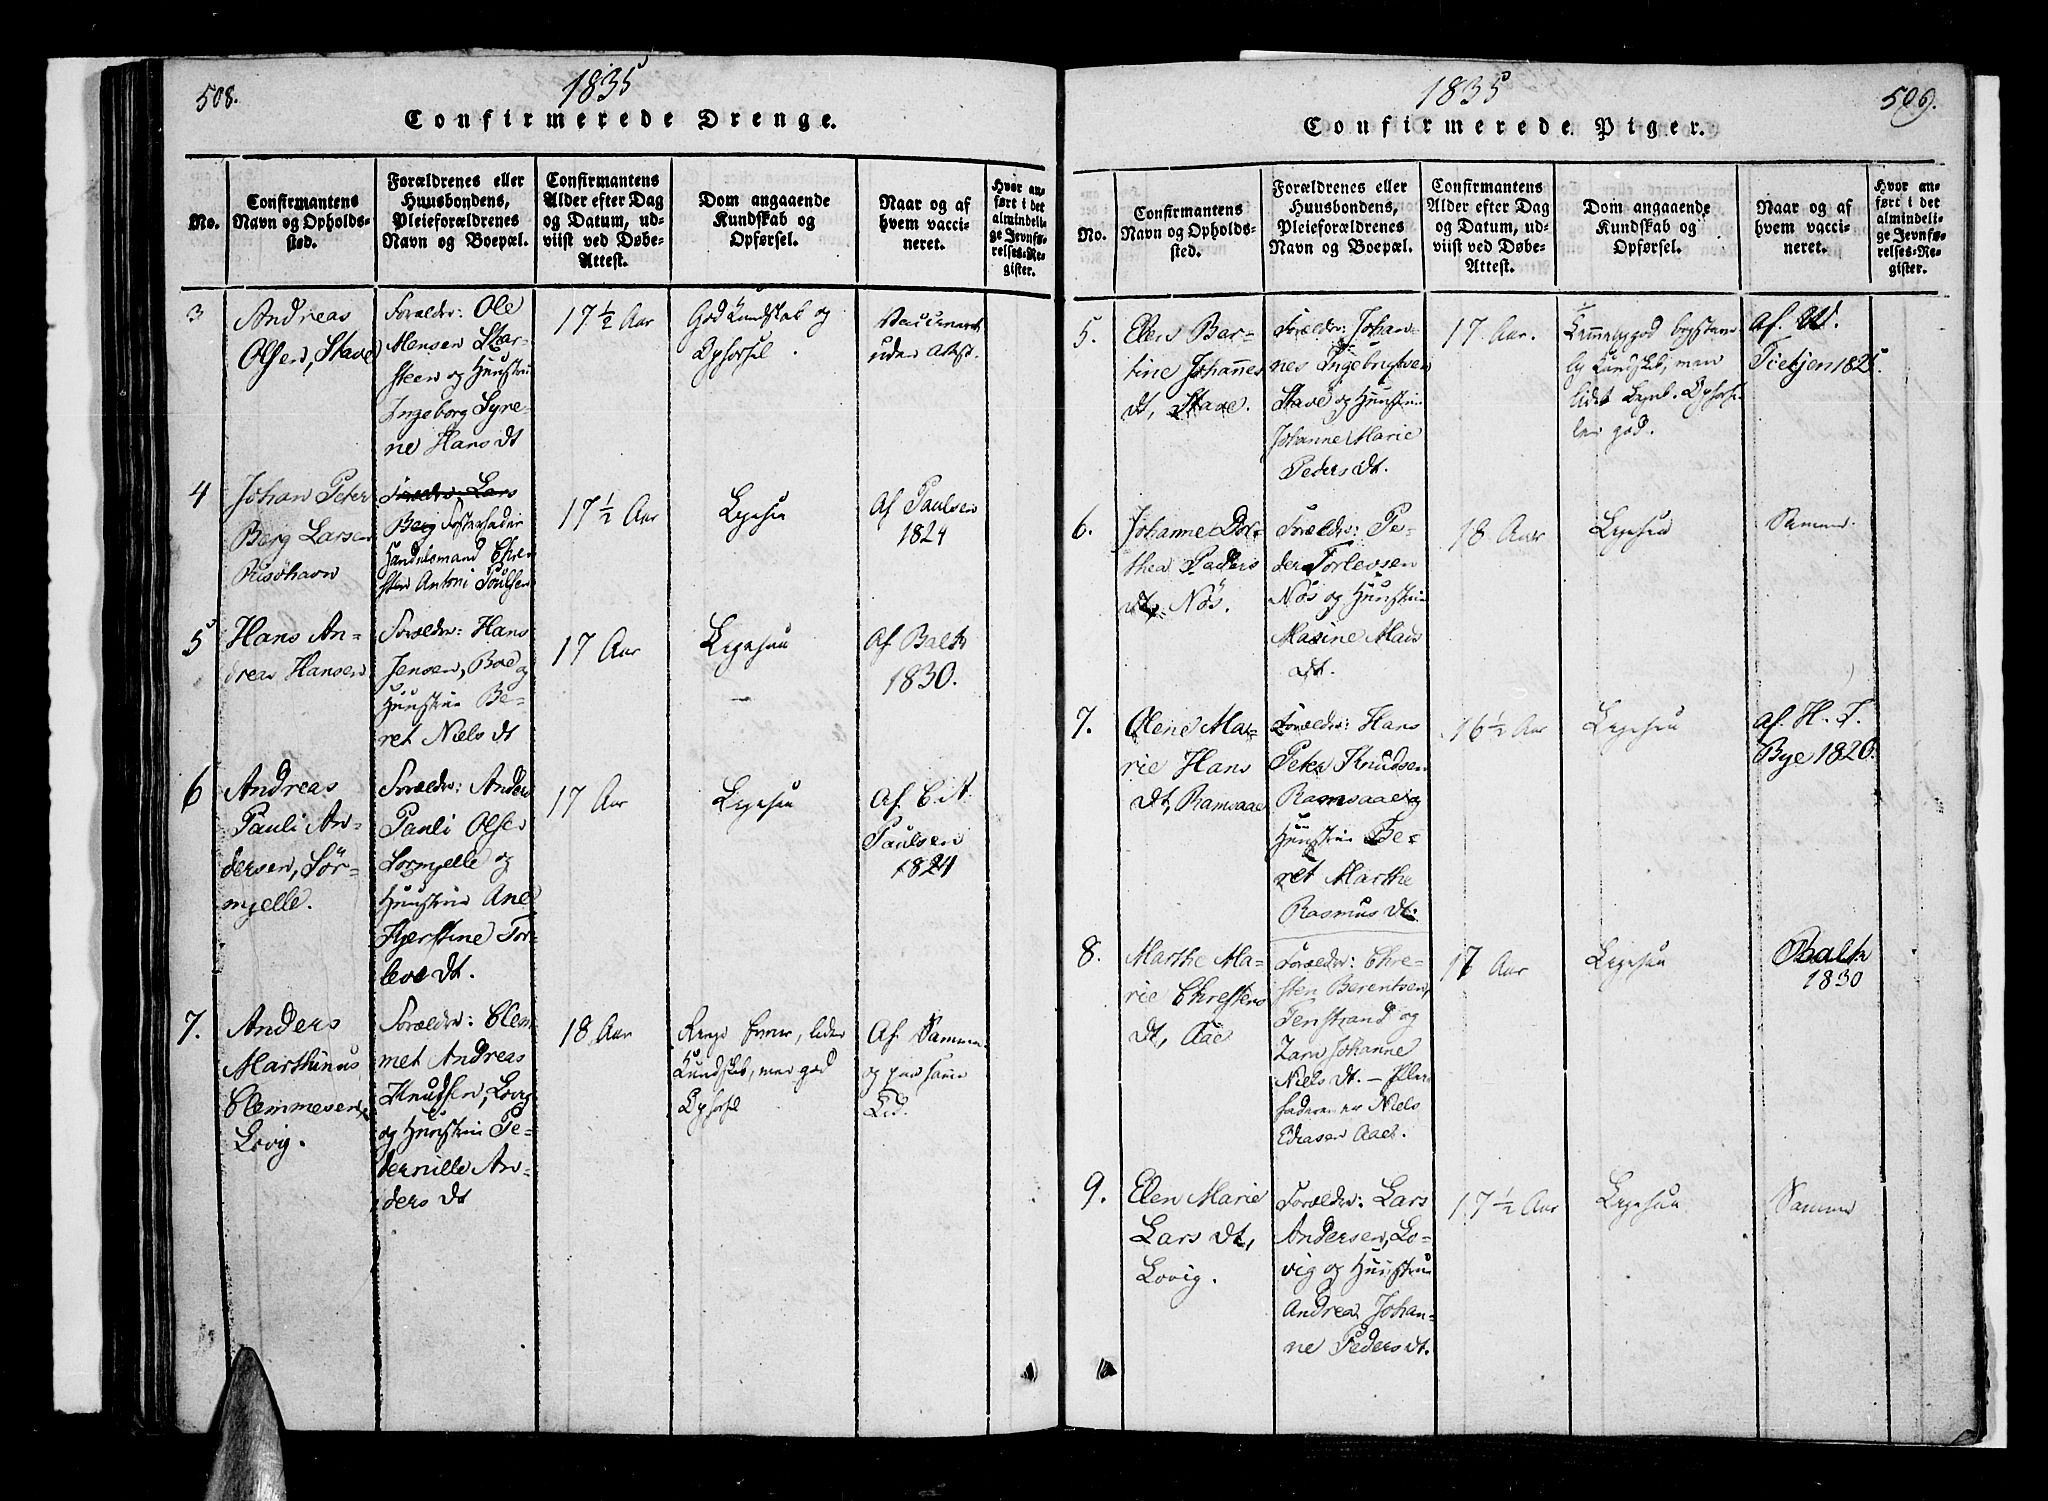 508.
1835
Confirmerede Drenge.
No.
Confirmantens
Navn og Opholds-
sted.
Forældrenes eller
Huusbondens,
Pleieforældrenes
Navn og Boepæl.
Confirmantens
Alder efter Dag
og Datum, ud-
viist ved Døbe-
Attest.
Dom angaaende
Kundskab og
Opførsel.
Naar og af
hvem vacci-
neret.
Hvor an-
ført i det
almindeli-
ge Jevnfø-
relses-Re-
gister.
3
Andreas
Olsen, Stave
Forældre: Ole
Mensen Skar-
steen og Huustru
Ingeborg Syre-
ne Hans dt
17 1/2 Aar
God Kundskab og
Opførsel.
uden Attest.
4
Johan Peter
Berg Larsen
Risöhavn
Forældre: Lars
Berg Fosterfader
Handelsmand Chre-
sten Antoni Poulsen
17 1/2 Aar
Ligesaa
Af Paulsen
1824
5
Hans An-
dreas Hansen
Forældre: Hans
Jensen, Boe og
Huustrue Be-
ret Niels dt
17 Aar
Ligesaa
Af Balk
1830.
6
Andreas
Pauli An-
dersen, Sör-
mjelle.
Forældre: Anders
Pauli Olsen
Sormjelle og
Huustrue Ane
Kjerstine Tor-
leve dt.
17 Aar
Ligesaa
Af C: A.
Paulsen
1824
7.
Anders
Marthinus
Clemmesen,
Lovig.
Forældre: Clem-
met Andreas
Knudsen, Lovig
og Huustrue Pe-
dernille An-
ders dt
18 Aar
Kundskab, men god
Opførsel
Af Samme
og paa samme
Tid.
1835
509.
Confirmerede Piger.
No.
Confirmantens
Navn og Opholds-
sted.
Forældrenes eller
Huusbondens,
Pleieforældrenes
Navn og Boepæl.
Confirmantens
Alder efter Dag
og Datum, ud-
viist ved Døbe-
Attest.
Dom angaaende
Kundskab og
Opførsel.
Naar og af
hvem vacci-
neret.
Hvor an-
ført i det
almindeli-
ge Jevnfø-
relses-Re-
gister.
5.
Elen Bar-
tine Johannes
dt, Stave.
Forældre: Johan-
nes Ingebrigtsen
Stave og Huustrue
Johanne Marie
Peders dt.
17 Aar.
Kundskab, men
god.
Af
Tietjen 1825.
6.
Johanne Dor-
thea Peders
dt, Nös.
Forældre: Pe-
der Torlevsen
Nös og Huustrue
Maxine Mads
dt.
18 Aar
Ligesaa
Samme.
7.
Olene Ma-
rie Hans
dt, Ramsaae
Forældre: Hans
Peter Knudsen
Ramsaae og
Huustrue Be-
ret Marthe
Rasmus dt.
16 1/2 Aar
Ligesaa
Af H. T.
Bye 1820.
8.
Marthe Ma-
rie Chrestens
dt, Aae
Forældre: Chre-
sten Berentsen,
Fenstrand og
Johanne
Niels dt. –
faderen er Niels
Aaes.
17 Aar
Ligesaa
Balk
1830
9.
Elen Marie
Lars dt,
Lovig.
Forældre: Lars
Andersen, Lo-
vig og Huustrue
Andrea Johan-
ne Peders dt.
17 1/2 Aar
Ligesaa
Samme